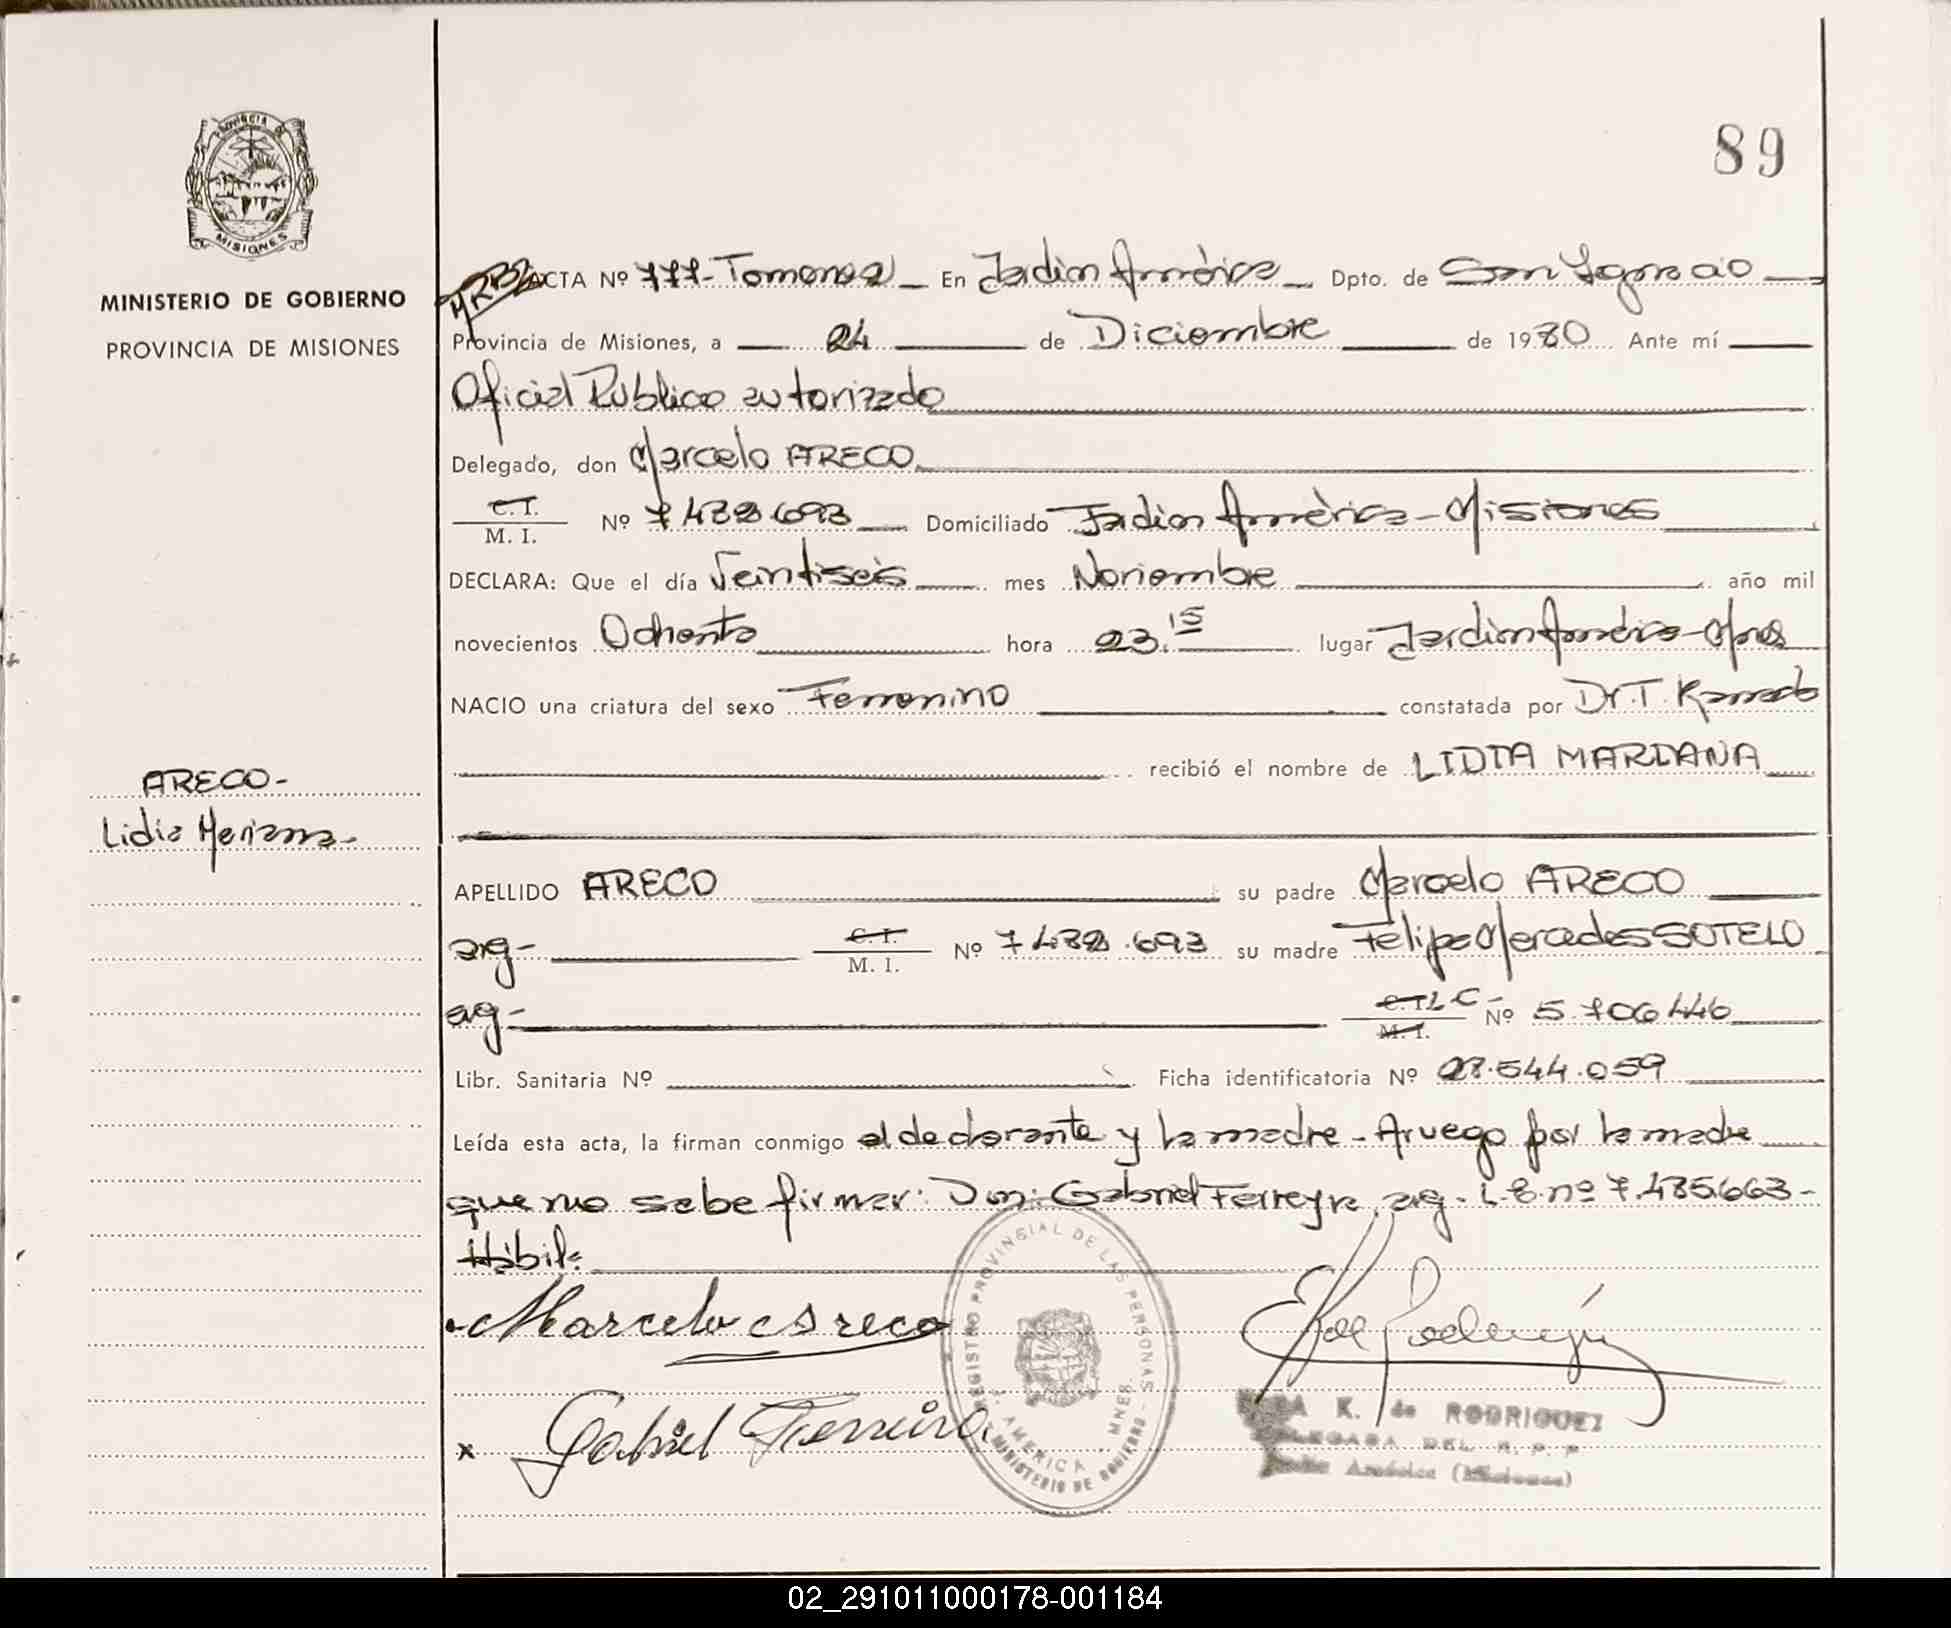 PROVINCIA DE
MISIONES
MINISTERIO DE GOBIERNO
PROVINCIA DE MISIONES
89
ACTA Nº 777- Tomo nº 2 En Jardín América Dpto. de San Ignacio
Provincia de Misiones, a 24 de Diciembre de 1980 Ante mí
Oficial Público autorizado
Delegado, don Marcelo ARECO
C.I.
M. I. Nº 7.432.693 Domiciliado Jardin América - Misiones
DECLARA: Que el día Veintiseis mes Noviembre año mil
novecientos Ochenta hora 23.15 lugar Jardin América - Mnes
NACIO una criatura del sexo Femenino constatada por Dr. T.
recibió el nombre de LIDIA MARIANA
ARECO-
Lidia Mariana-
APELLIDO ARECO su padre Marcelo ARECO
arg- C.I.
M. I. Nº 7.432.693 su madre Felipa Mercedes SOTELO
arg- C.I. L C-
M. I. Nº 5.706.446
Libr. Sanitaria Nº Ficha identificatoria Nº 28.544.059
Leída esta acta, la firman conmigo el declarante y la madre - A ruego por la madre
que no sabe firmar: Don: Gabriel Ferreyra, arg. L.E. nº 7.485.663-
Hábil:
Marcelo Areco
x Gabriel Ferreira
REGISTRO PROVINCIAL DE LAS PERSONAS
J. AMERICA MNES.
MINISTERIO DE GOBIERNO
K. de RODRIGUEZ
DELEGADA DEL R. P. P.
Jardín América (Misiones)
02_291011000178-001184